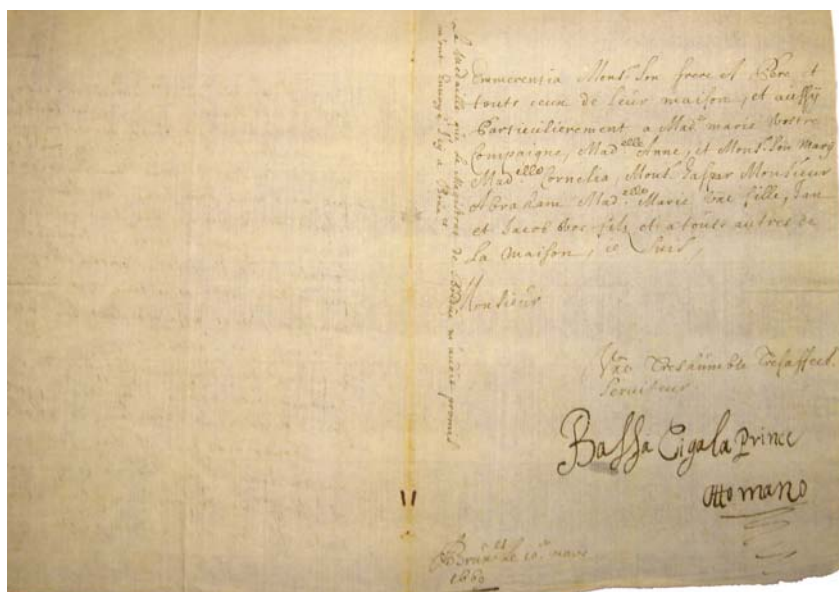 Emmerentia Monsr. Son frere et Pere, et
touts ceux de leur maison, et aussy
Particulierement a Madlle marie Vostre
Compaigne, Madelle Anne, et Monsr. Son Mary
Madelle Cornelia, Monsr. Gaspar Monsieur
Abraham Madelle Marie Vre fille, Jan
et Jacob Vos fils et a touts autres de
La maison, ie Suis,
Monsieur
Vre Treshumble Tresaffect.
Serviteur.
Bassa Cigala Prince
Ottomano
Bruxles le 10 mars
La Medaille que le Magistrat de m'avoit promis
m'ont envoyé icy a